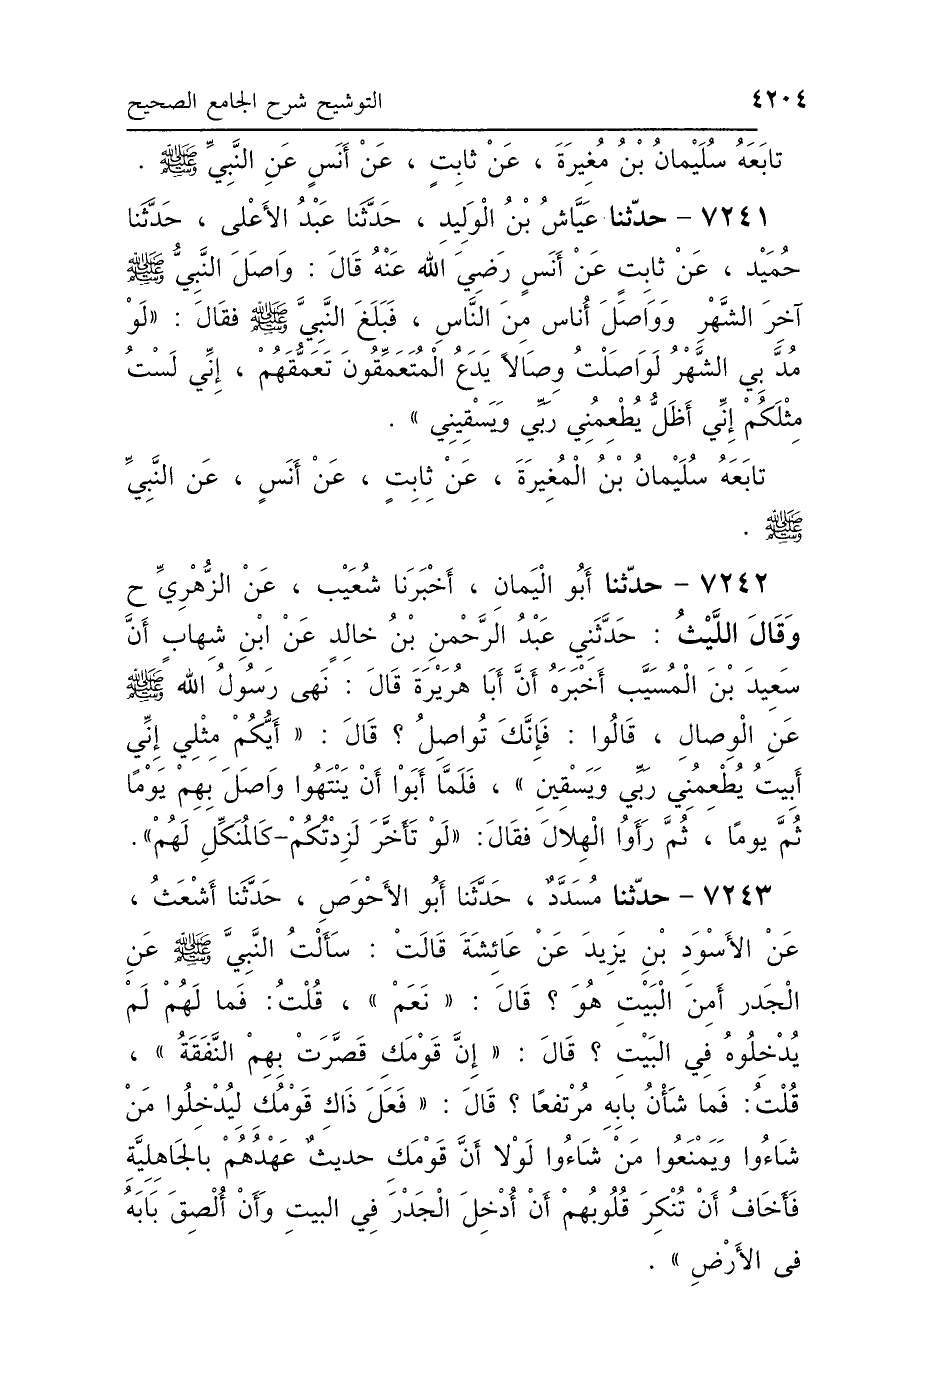 ٤٢٠٤ التوشيح شرح الجامع الصحيح
تابَعَهُ سُلَيْمانُ بْنُ مُغِيرَةَ ، عَنْ ثابتٍ ، عَنْ أَنَسٍ عَنِ النَّبِيِّ ﷺ .
٧٢٤١ – حدّثنا عَيَّاشُ بْنُ الْوَلِيدِ ، حَدَّثَنا عَبْدُ الأَعْلى ، حَدَّثَنا
حُمَيْد ، عَنْ ثابتٍ عَنْ أَنَسٍ رَضِيَ الله عَنْهُ قَالَ : وَاصَلَ النَّبِيُّ ﷺ
آخِرَ الشَّهْرِ وَوَاصَلَ أُناس مِنَ النَّاسِ ، فَبَلَغَ النَّبِيَّ ﷺ فقَالَ : «لَوْ
مُدَّ بِي الشَّهْرُ لَوَاصَلْتُ وِصَالاً يَدَعُ الْمُتَعَمِّقُونَ تَعَمُّقَهُمْ ، إِنِّي لَسْتُ
مِثْلَكُمْ إِنِّي أَظَلُّ يُطْعِمُنِي رَبِّي وَيَسْقِينِي » .
تابَعَهُ سُلَيْمانُ بْنُ الْمُغِيرَةَ ، عَنْ ثابِتٍ ، عَنْ أَنَسٍ ، عَن النَّبِيِّ
ﷺ .
٧٢٤٢ – حدّثنا أَبُو الْيَمانِ ، أَخْبَرَنَا شُعَيْب ، عَنْ الزُّهْرِيِّ ح
وَقَالَ اللَّيْثُ : حَدَّثَنِي عَبْدُ الرَّحْمنِ بْنُ خالِدٍ عَنْ ابْنِ شِهابٍ أَنَّ
سَعِيدَ بْنَ الْمُسَيَّبِ أَخْبَرَهُ أَنَّ أَبَا هُرَيْرَةَ قَالَ : نَهى رَسُولُ الله ﷺ
عَنِ الْوِصالِ ، قَالُوا : فَإِنَّكَ تُواصِلُ ؟ قَالَ : « أَيُّكُمْ مِثْلِي إِنِّي
أَبِيتُ يُطْعِمُنِي رَبِّي وَيَسْقِينِ » ، فَلَمَّا أَبَوْا أَنْ يَنْتَهُوا وَاصَلَ بِهِمْ يَوْمًا
ثُمَّ يومًا ، ثُمَّ رَأَوُا الْهِلالَ فقَالَ: «لَوْ تَأَخَّرَ لَزِدْتُكُمْ–كَالْمُنَكِّلِ لَهُمْ».
٧٢٤٣ – حدّثنا مُسَدَّدٌ ، حَدَّثَنا أَبُو الأَحْوَصِ ، حَدَّثَنا أَشْعَثُ ،
عَنْ الأَسْوَدِ بْنِ يَزِيدَ عَنْ عَائِشَةَ قَالَتْ : سَأَلْتُ النَّبِيَّ ﷺ عَنِ
الْجَدرِ أَمِنَ الْبَيْتِ هُوَ ؟ قَالَ : « نَعَمْ » ، قُلْتُ: فَما لَهُمْ لَمْ
يُدْخِلُوهُ فِي البَيْتِ ؟ قَالَ : « إِنَّ قَوْمَكِ قَصَّرَتْ بِهِمْ النَّفَقَةُ » ،
قُلْتُ: فَما شَأْنُ بابِهِ مُرْتفعًا ؟ قَالَ : « فَعَلَ ذَاكِ قَوْمُكِ لِيُدْخِلُوا مَنْ
شَاءُوا وَيَمْنَعُوا مَنْ شَاءُوا لَوْلا أَنَّ قَوْمَكِ حديثٌ عَهْدُهُمْ بالجَاهِلِيَّةِ
فَأَخَافُ أَنْ تُنْكِرَ قُلُوبُهمْ أَنْ أُدْخِلَ الْجَدْرَ فِي البيتِ وَأَنْ أُلْصِقَ بَابَهُ
فى الأَرْضِ » .